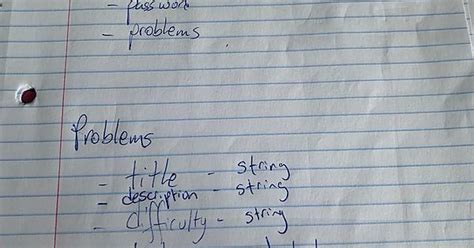 - password
- problems
Problems
- title - string
- description - string
- difficulty - string